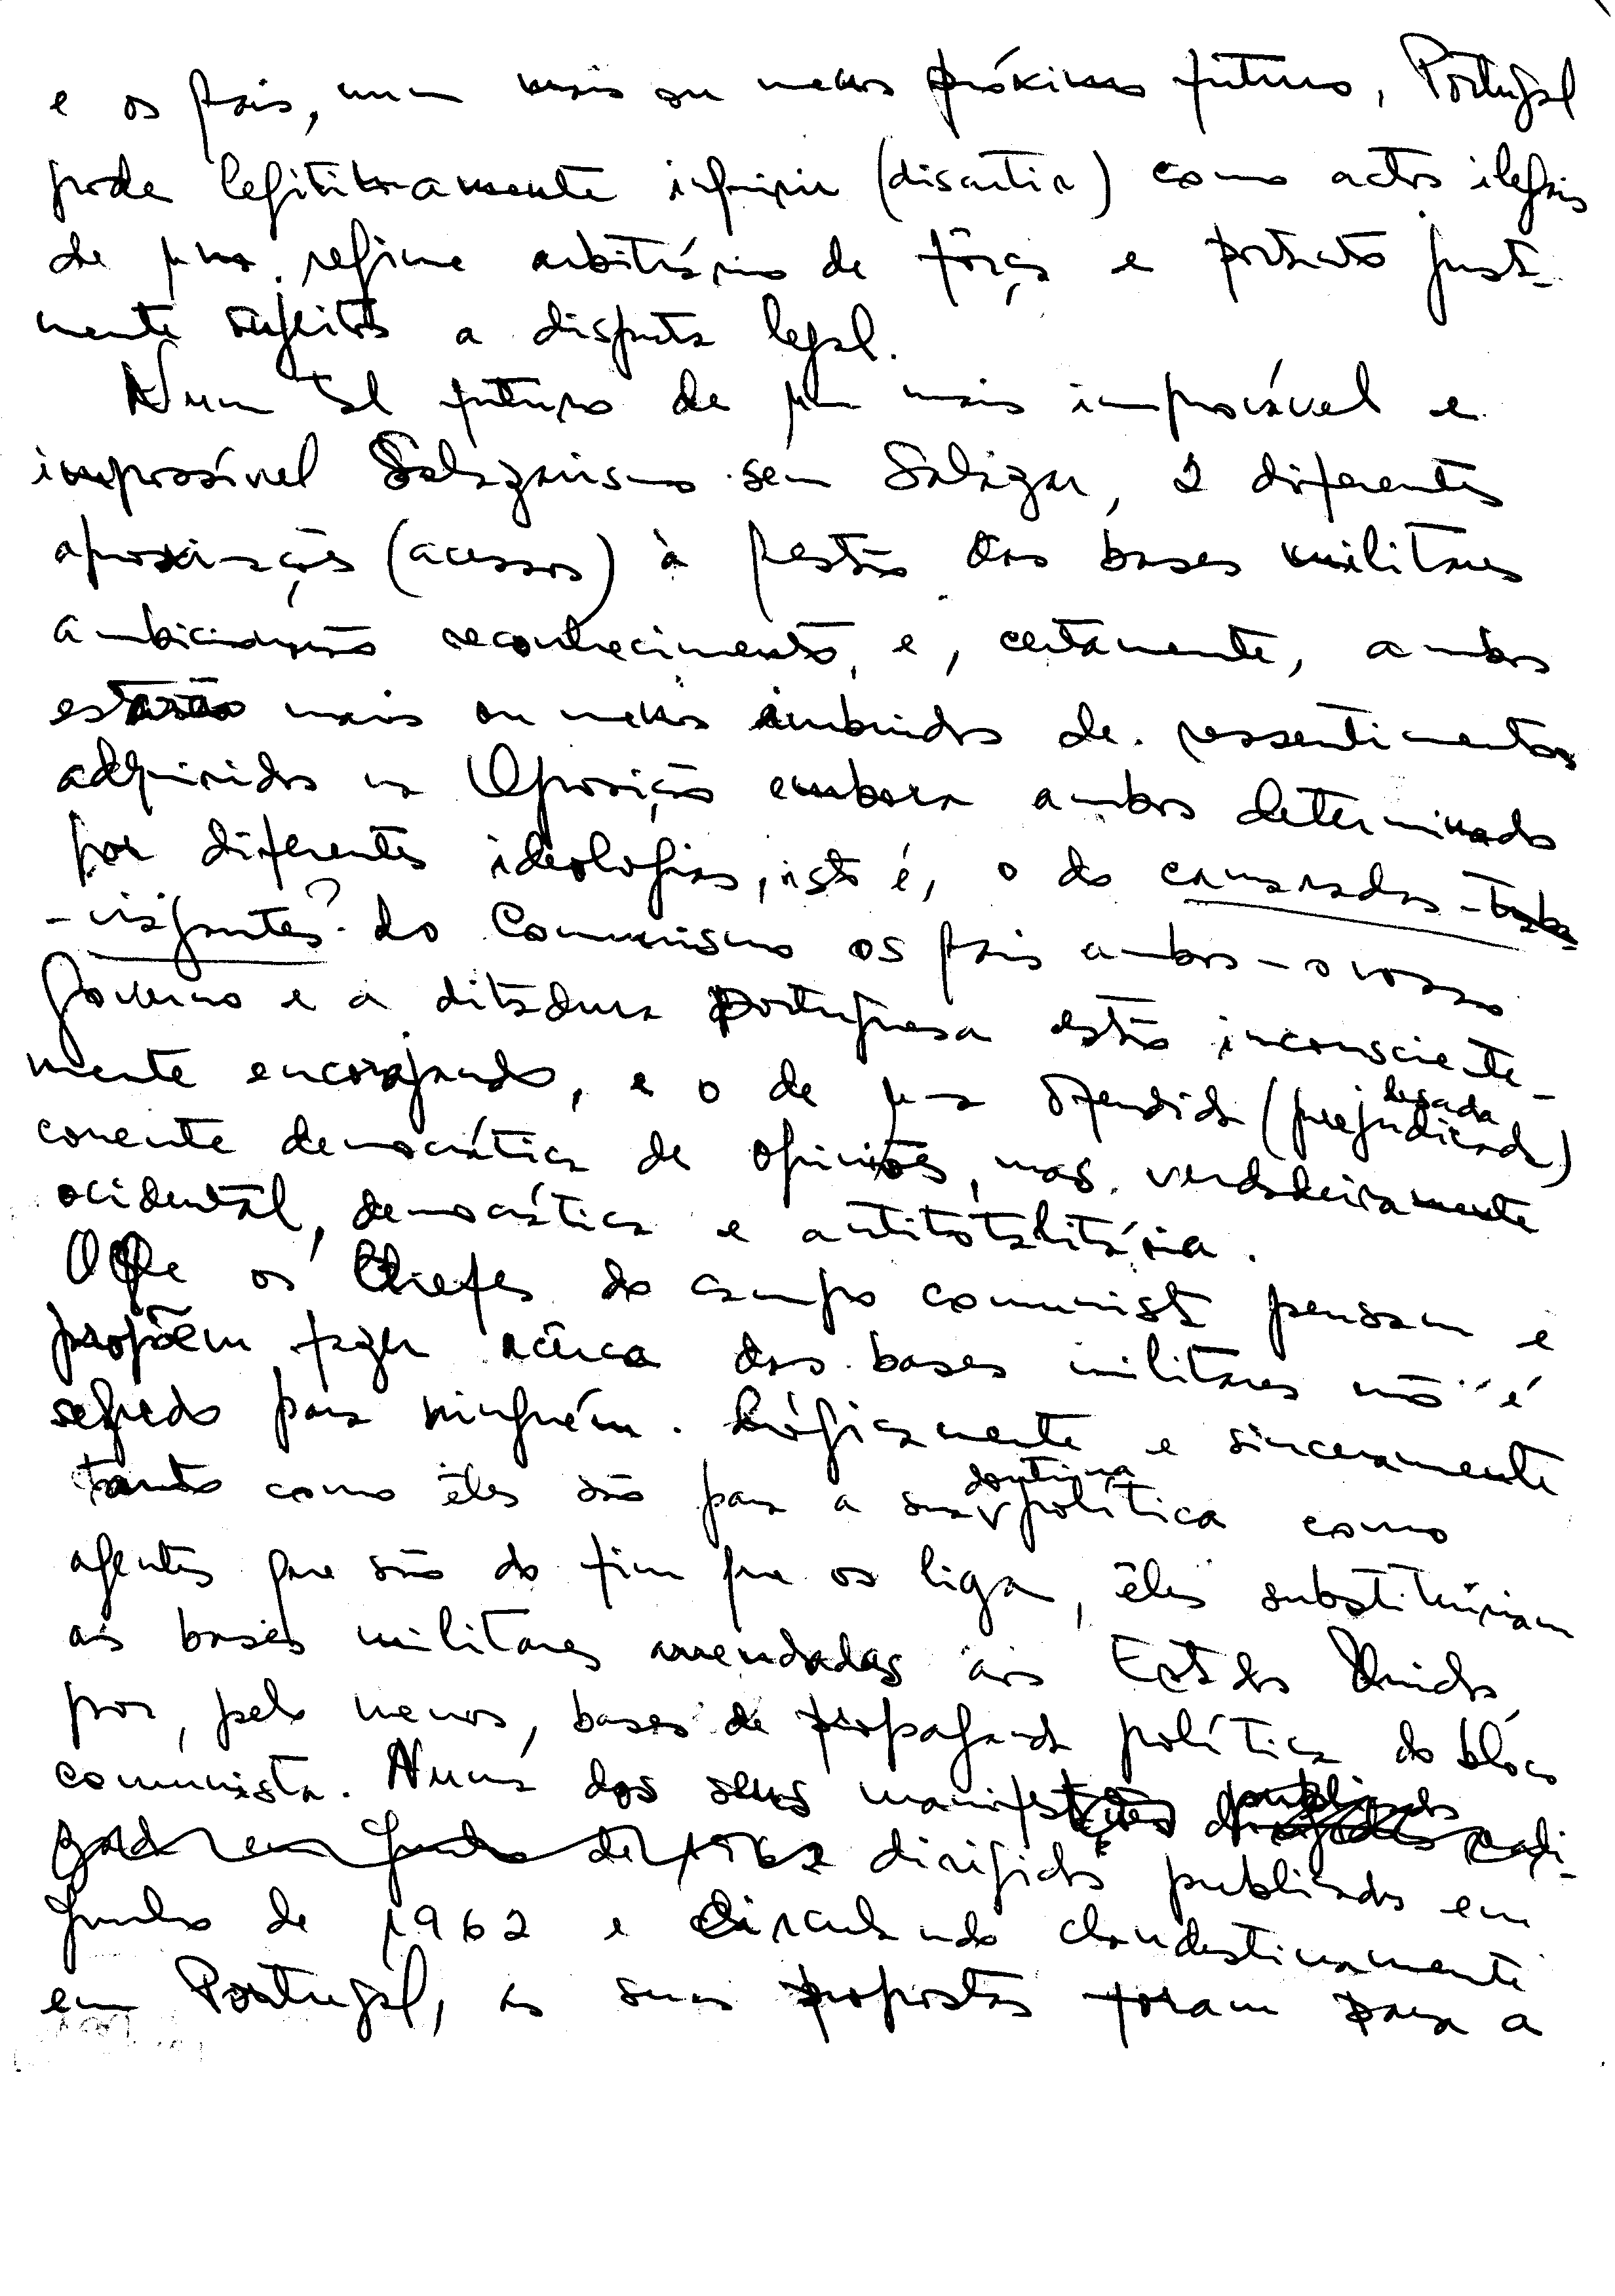 e os quais, num mais ou menos próximo futuro, Portugal
pode legitimamente inquirir (discutir) como actos ilegais
de um regime arbitrário de fôrça e portanto justa-
mente sujeitos a disputa legal.
Num tal futuro de um mais improvável e
impossível Salazarismo sem Salazar, 2 diferentes
aproximações (acessos) à questão das bases militares
ambicionarão reconhecimento, e, certamente, ambos
estarão mais ou menos imbuídos de ressentimentos
adquiridos na Oposição embora ambos determinados
por diferentes ideologias, isto é, o do camaradas-
-viajantes? do Comunismo os quais ambos - o vosso
Governo e a ditadura portuguesa estão inconsciente-
mente encorajando, e o de uma ofendida (prejudicada) lesada
corrente democrática de opiniões, mas verdadeiramente
ocidental, democrática e antitotalitária.
O que os Chefes do campo comunista pensam e
propõem fazer acêrca das bases militares não é
segredo para ninguém. Lògicamente e sinceramente
tanto como êles são para a sua doutrina política como
agentes que são do fim que os liga, êles substituiriam
as bases militares arrendadas aos Estados Unidos
por, pelo menos, bases de propaganda política do blóco
comunista. Num dos seus
dirigidos publicados em
Junho de 1962 e circulando clandestinamente
em Portugal, as suas propostas foram para a